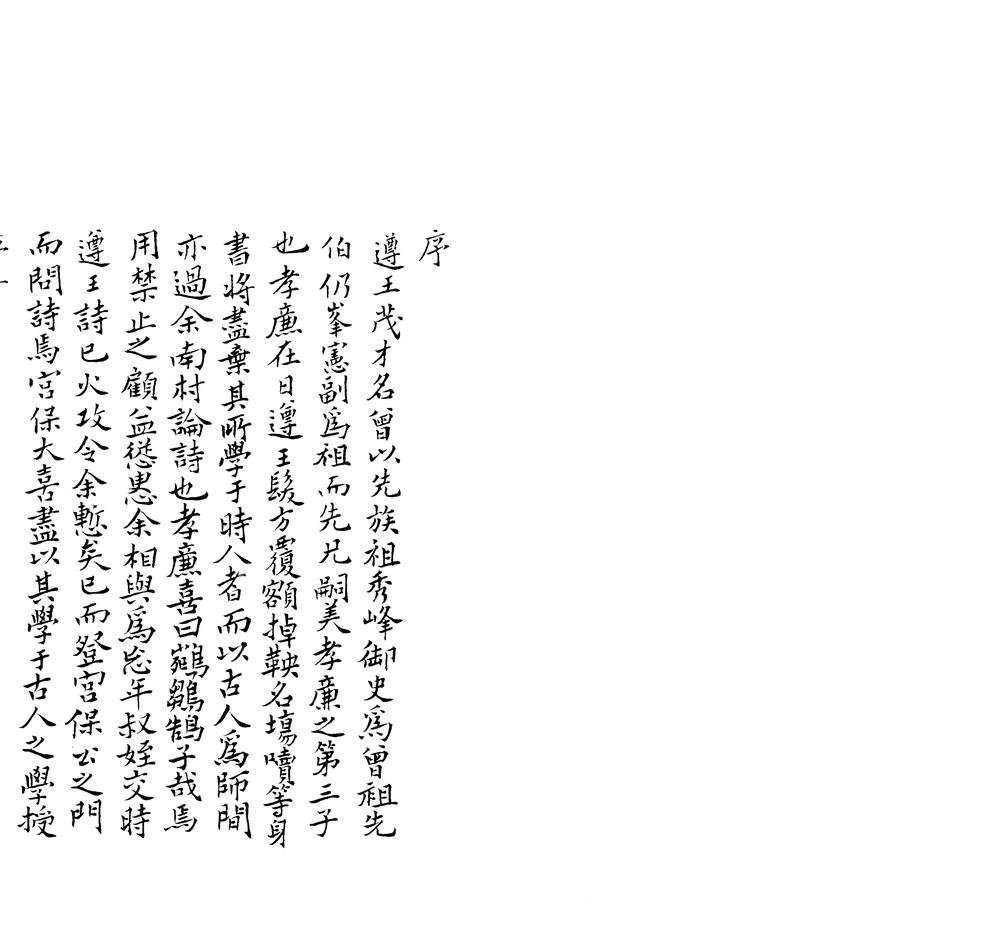 序
遵王茂才名曾以先族祖秀峰御史爲曾祖先
伯仍峯憲副爲祖而先兄嗣美孝廉之第三子
也孝廉在日遵王髮方覆額掉鞅名場讀等身
書將盡棄其所學于時人者而以古人爲師間
亦過余南村論詩也孝廉喜曰鷃鶵鵠子哉焉
用禁止之顧益慫恿余相與爲忘年叔姪交時
遵王詩已火攻令余慙矣已而登宮保公之門
而問詩焉宮保大喜盡以其學于古人之學授